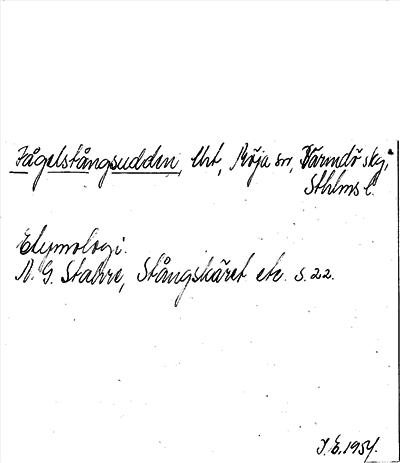 Fågelstångsudden, Urt, Möja sn, Värmdö skg,
Sthlms l.
Etymologi.
N. G. Stahre, Stångskäret etc. s. 22.
I. E. 1954.